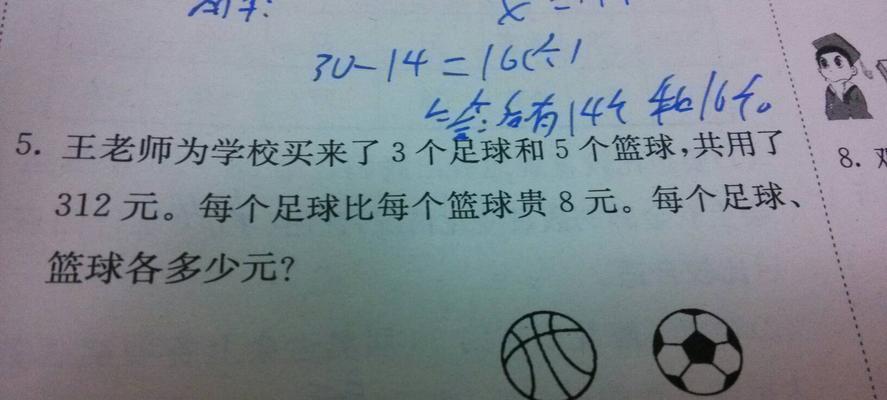 30-14=16(个)
答:各有14个和16个。
5. 王老师为学校买来了3个足球和5个篮球,共用了
312元。每个足球比每个篮球贵8元。每个足球、
篮球各多少元?
8.